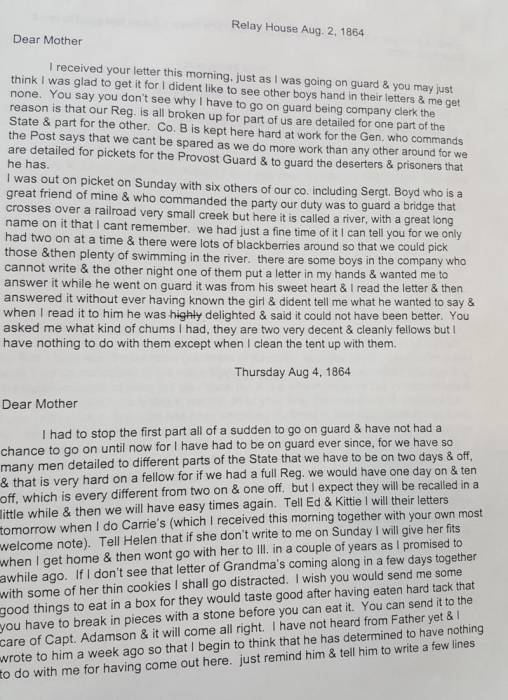 Relay House Aug. 2, 1864
Dear Mother
I received your letter this morning, just as I was going on guard & you may just
think I was glad to get it for I dident like to see other boys hand in their letters & me get
none. You say you don't see why I have to go on guard being company clerk the
reason is that our Reg. is all broken up for part of us are detailed for one part of the
State & part for the other. Co. B is kept here hard at work for the Gen. who commands
the Post says that we cant be spared as we do more work than any other around for we
are detailed for pickets for the Provost Guard & to guard the deserters & prisoners that
he has.
I was out on picket on Sunday with six others of our co. including Sergt. Boyd who is a
great friend of mine & who commanded the party our duty was to guard a bridge that
crosses over a railroad very small creek but here it is called a river, with a great long
name on it that I cant remember. we had just a fine time of it I can tell you for we only
had two on at a time & there were lots of blackberries around so that we could pick
those &then plenty of swimming in the river. there are some boys in the company who
cannot write & the other night one of them put a letter in my hands & wanted me to
answer it while he went on guard it was from his sweet heart & I read the letter & then
answered it without ever having known the girl & dident tell me what he wanted to say &
when I read it to him he was highly delighted & said it could not have been better. You
asked me what kind of chums I had, they are two very decent & cleanly fellows but I
have nothing to do with them except when I clean the tent up with them.
Thursday Aug 4, 1864
Dear Mother
I had to stop the first part all of a sudden to go on guard & have not had a
chance to go on until now for I have had to be on guard ever since, for we have so
many men detailed to different parts of the State that we have to be on two days & off,
& that is very hard on a fellow for if we had a full Reg. we would have one day on & ten
off, which is every different from two on & one off. but I expect they will be recalled in a
little while & then we will have easy times again. Tell Ed & Kittie I will their letters
tomorrow when I do Carrie's (which I received this morning together with your own most
welcome note). Tell Helen that if she don't write to me on Sunday I will give her fits
when I get home & then wont go with her to Ill. in a couple of years as I promised to
awhile ago. If I don't see that letter of Grandma's coming along in a few days together
with some of her thin cookies I shall go distracted. I wish you would send me some
good things to eat in a box for they would taste good after having eaten hard tack that
you have to break in pieces with a stone before you can eat it. You can send it to the
care of Capt. Adamson & it will come all right. I have not heard from Father yet & I
wrote to him a week ago so that I begin to think that he has determined to have nothing
to do with me for having come out here. just remind him & tell him to write a few lines